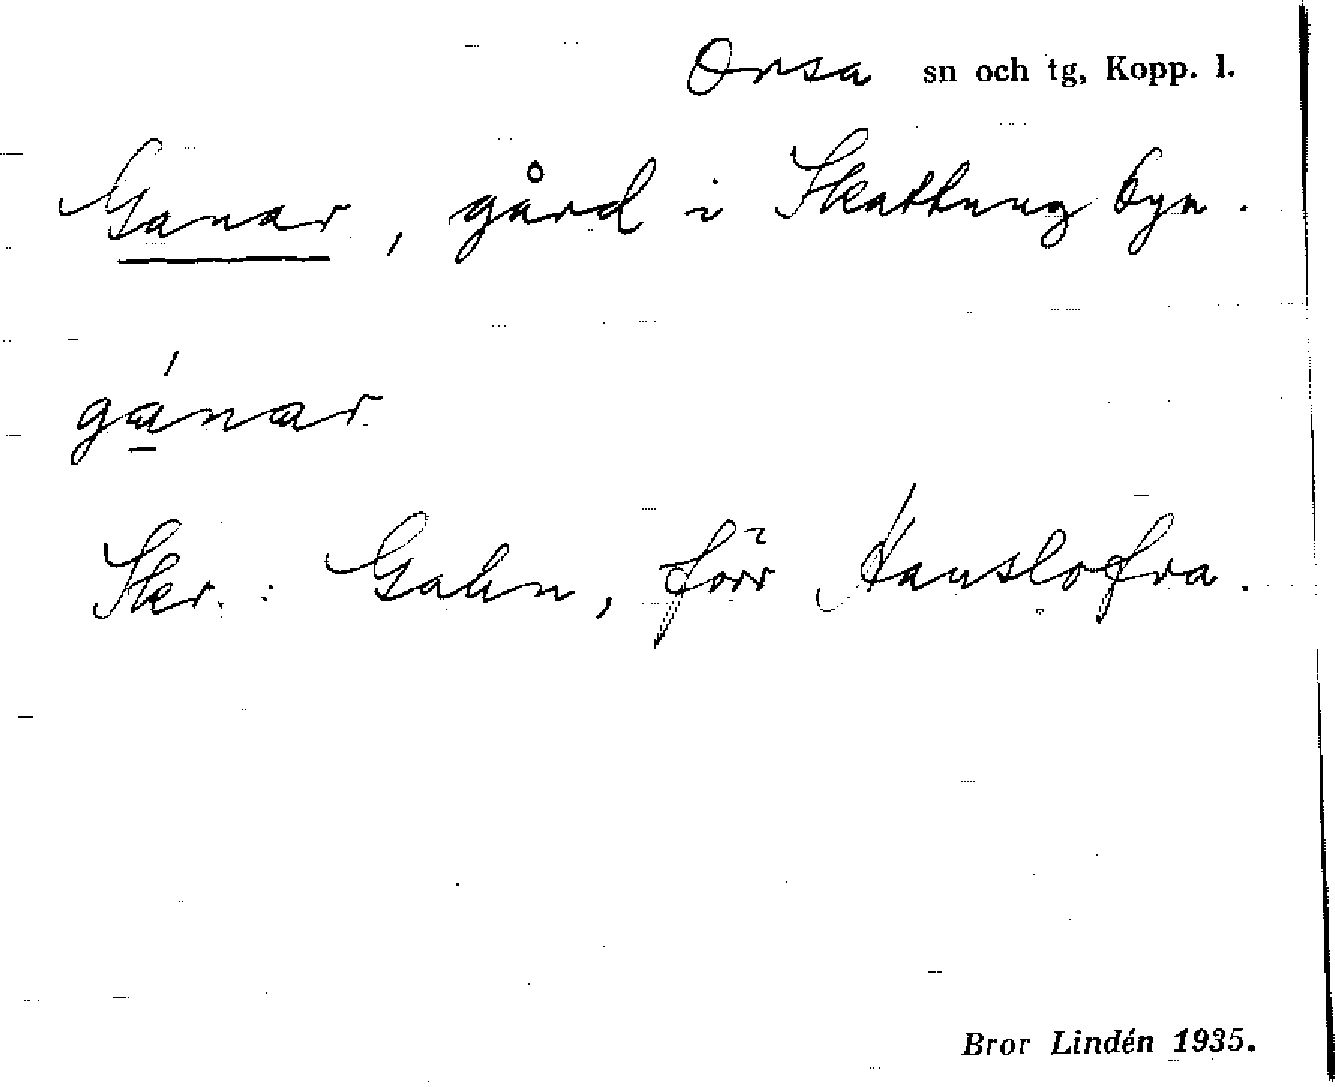 Orsa sn och tg, Kopp. l.
Ganar, gård i Skattungbyn.
gánar.
Skr.: Gahn, förr Hanslofra.
Bror Lindén 1935.